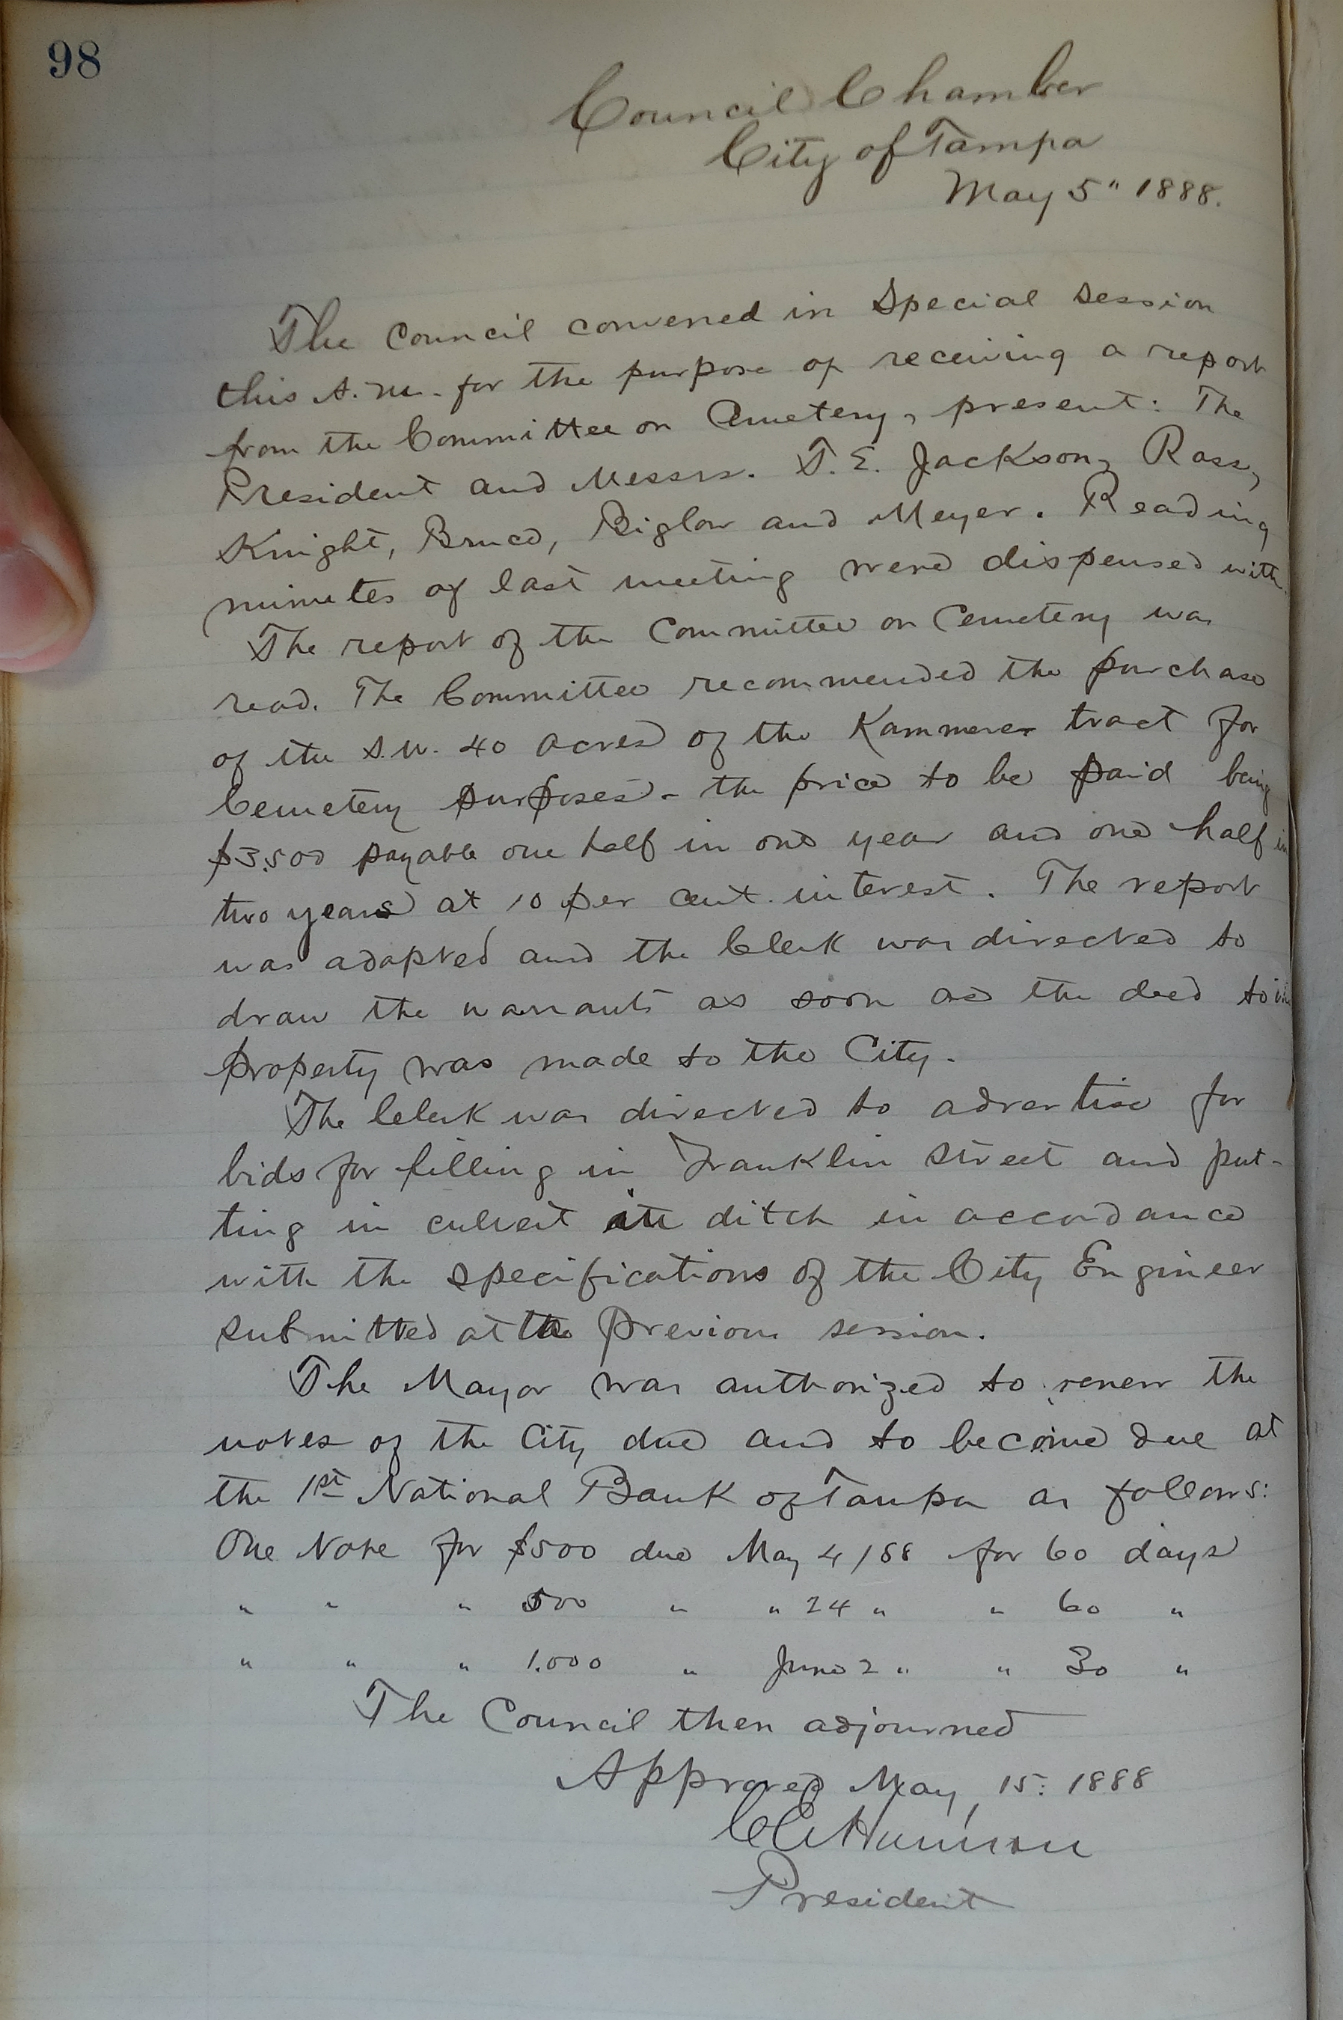 98
Council Chamber
City of Tampa
May 5" 1888.
The Council convened in Special Session
this A.M. for the purpose of receiving a report
from the Committee on Cemetery, present: The
President and Messrs. T. E. Jackson, Ross,
Knight, Bruce, Biglow and Meyer. Reading
minutes of last meeting were dispensed with
The report of the Committee on Cemetery was
read. The Committee recommended the purchase
of the S.W. 40 acres of the Kammerer tract for
Cemetery purposes - the price to be paid being
$3.500 payable one half in one year and one half in
two years at 10 per cent. interest. The report
was adopted and the Clerk was directed to
draw the warrants as soon as the deed to
property was made to the City.
The Clerk was directed to advertise for
bids for filling in Franklin Street and put-
ting in culvert in ditch in accordance
with the specifications of the City Engineer
submitted at the previous session.
The Mayor was authorized to renew the
notes of the City due and to become due at
the 1st National Bank of Tampa as follows:
One Note for $500 due May 4/88 for 60 days
" " " 500 " " 24 " " 60 "
" " " 1.000 " June 2 " " 30 "
The Council then adjourned
Approved May, 15: 1888
President